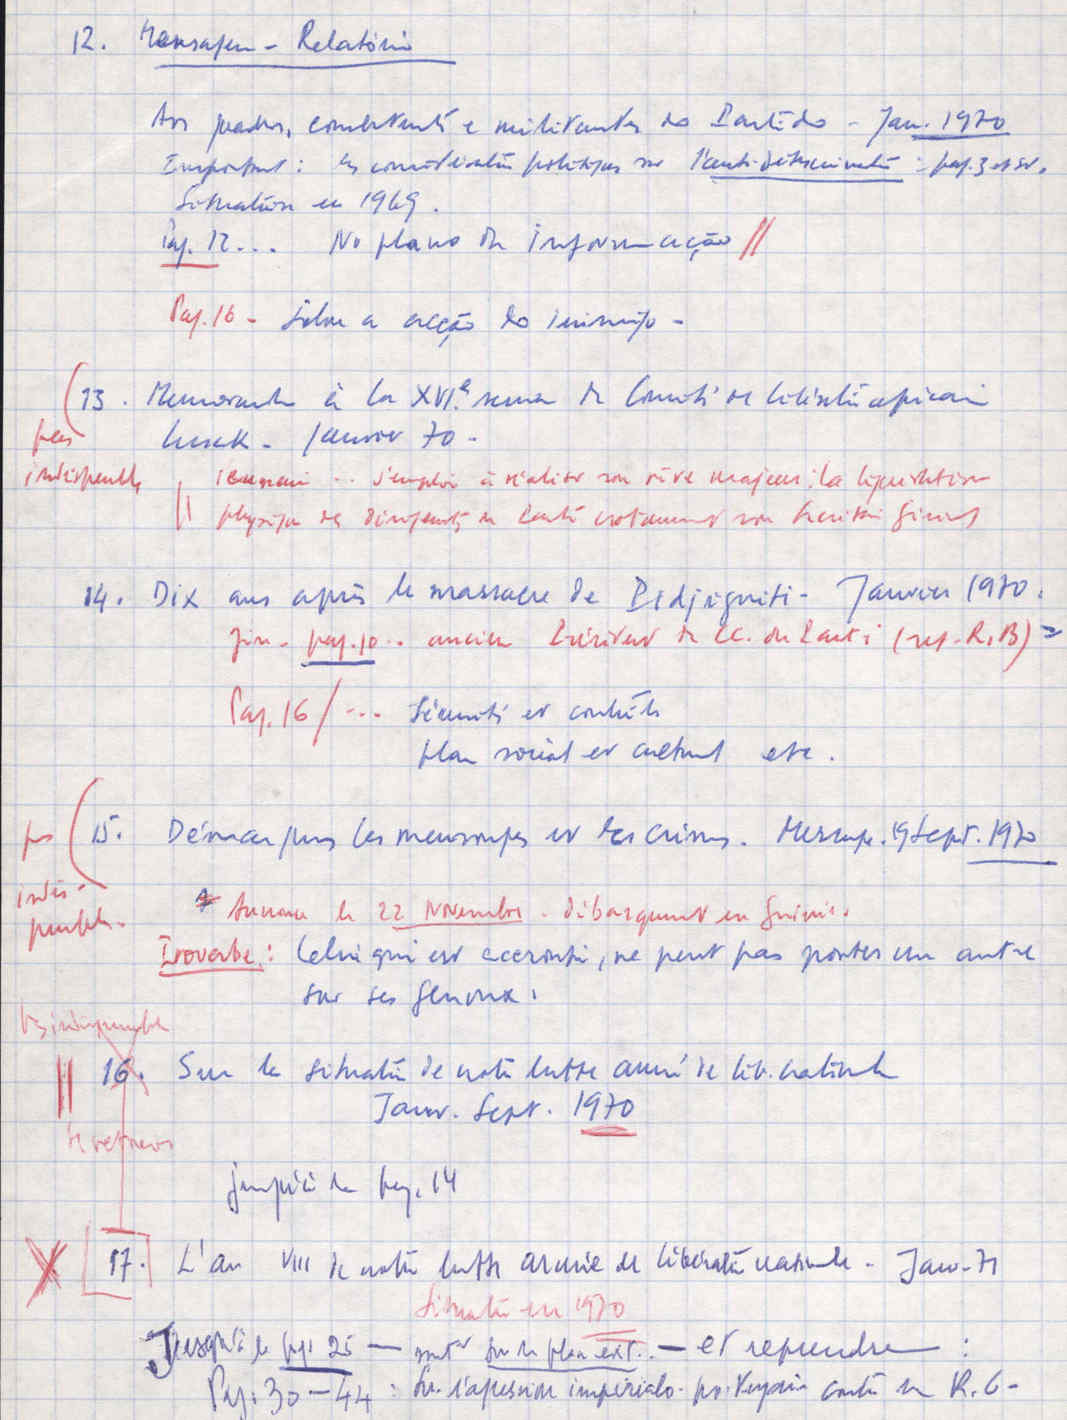 12. Mensagem - Relatório
Aos quadros, combatentes e militantes do Partido - Jan. 1970
Important : les considérations politiques sur : pag. 3 et sv.
Situation en 1969.
Pag. 12... No plano da informação //
Pag. 16 - Sobre a acção do inimigo -
13. à la XVI.e de Comité de Libération africain
Janvier 70 -
pas
indispensable
... s'emploi à réaliser son rêve majeur : la liquidation
physique des dirigeants du Parti notamment son Secrétaire Général
14. Dix ans après le massacre de Pidjiguiti - Janvier 1970.
fin - pag. 10 .. ancien du CC. du Parti (R. B)
Pag. 16 / ... Sécurité et contrôle
plan social et culturel etc.
pas
indis-
pensable.
15. Démasquons les mensonges et les crimes. Message. 19 Sept. 1970
Annonce le 22 Novembre - débarquement en Guinée.
Proverbe : Celui qui est accroupi, ne peut pas porter un autre
sur ses genoux.
indispensable
16. Sur la situation de notre lutte armée de lib. nationale
Janv. Sept. 1970
jusqu'à la pag. 14
17. L'an VIII de notre lutte armée de libération nationale - Janv. 71
Situation en 1970
Jusqu'à la pag. 25 — sur le plan ext. — et reprendre :
Pag. 30 - 44 : Sur l'agression impérialo-portugaise contre la R. G -